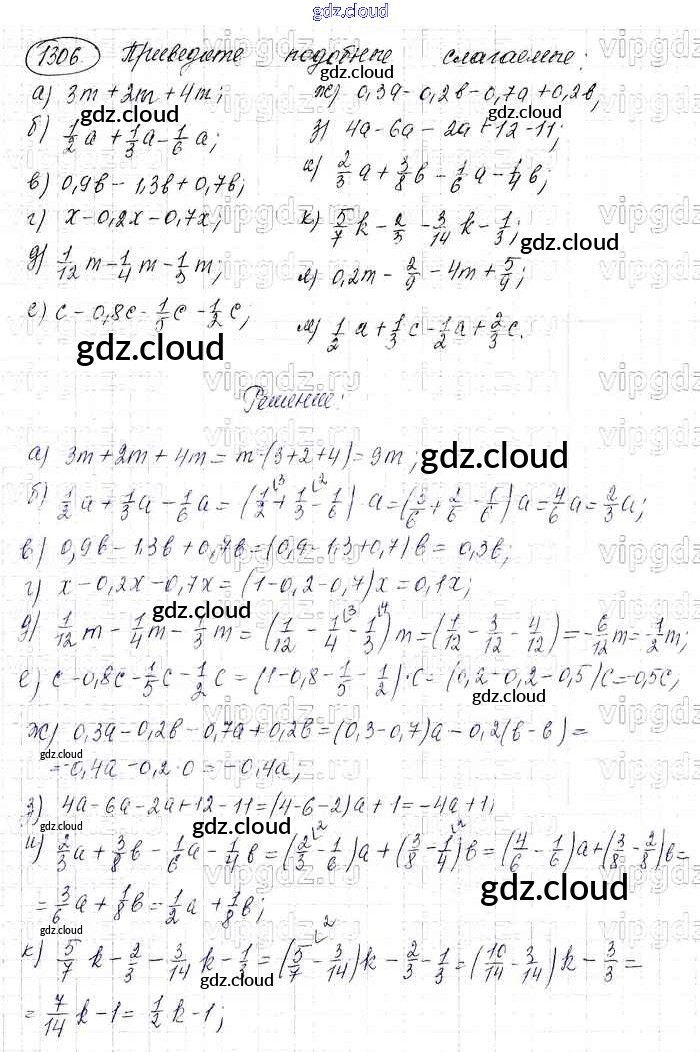 gdz.cloud
1306. Приведите подобные слагаемые:
а) 3m + 2m + 4m;
б) 1/2 a + 1/3 a - 1/6 a;
в) 0,9b - 1,3b + 0,7b;
г) x - 0,2x - 0,7x;
д) 1/12 m - 1/4 m - 1/3 m;
е) c - 0,8c - 1/5 c - 1/2 c;
ж) 0,3a - 0,2b - 0,7a + 0,2b;
з) 4a - 6a - 2a + 12 - 11;
и) 2/3 a + 3/8 b - 1/6 a - 1/4 b;
к) 5/7 k - 2/3 - 3/14 k - 1/3;
л) 0,2m - 2/9 - 4m + 5/9;
м) 1/2 a + 1/3 c - 1/2 a + 2/3 c.
Решение:
а) 3m + 2m + 4m = m·(3+2+4) = 9m;
б) 1/2 a + 1/3 a - 1/6 a = (1/2 + 1/3 - 1/6)·a = (3/6 + 2/6 - 1/6)a = 4/6 a = 2/3 a;
в) 0,9b - 1,3b + 0,7b = (0,9 - 1,3 + 0,7)b = 0,3b;
г) x - 0,2x - 0,7x = (1 - 0,2 - 0,7)x = 0,1x;
д) 1/12 m - 1/4 m - 1/3 m = (1/12 - 1/4 - 1/3)m = (1/12 - 3/12 - 4/12) = -6/12 m = -1/2 m;
е) c - 0,8c - 1/5 c - 1/2 c = (1 - 0,8 - 1/5 - 1/2)·c = (0,2 - 0,2 - 0,5)c = -0,5c;
ж) 0,3a - 0,2b - 0,7a + 0,2b = (0,3 - 0,7)a - 0,2(b - b) =
= -0,4a - 0,2·0 = -0,4a;
з) 4a - 6a - 2a + 12 - 11 = (4 - 6 - 2)a + 1 = -4a + 1;
и) 2/3 a + 3/8 b - 1/6 a - 1/4 b = (2/3 - 1/6)a + (3/8 - 1/4)b = (4/6 - 1/6)a + (3/8 - 2/8)b =
= 3/6 a + 1/8 b = 1/2 a + 1/8 b;
к) 5/7 k - 2/3 - 3/14 k - 1/3 = (5/7 - 3/14)k - 2/3 - 1/3 = (10/14 - 3/14)k - 3/3 =
= 7/14 k - 1 = 1/2 k - 1;